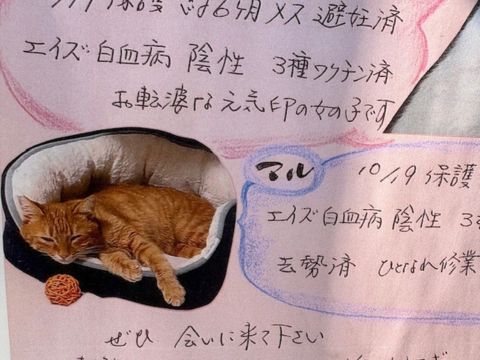 保護 6ヶ月 メス 避妊済
エイズ 白血病 陰性 3種ワクチン済
お転婆な元気印の女の子です
マル
10/19 保護
エイズ 白血病 陰性 3
去勢済 ひとなれ修業
ぜひ 会いに来て下さい